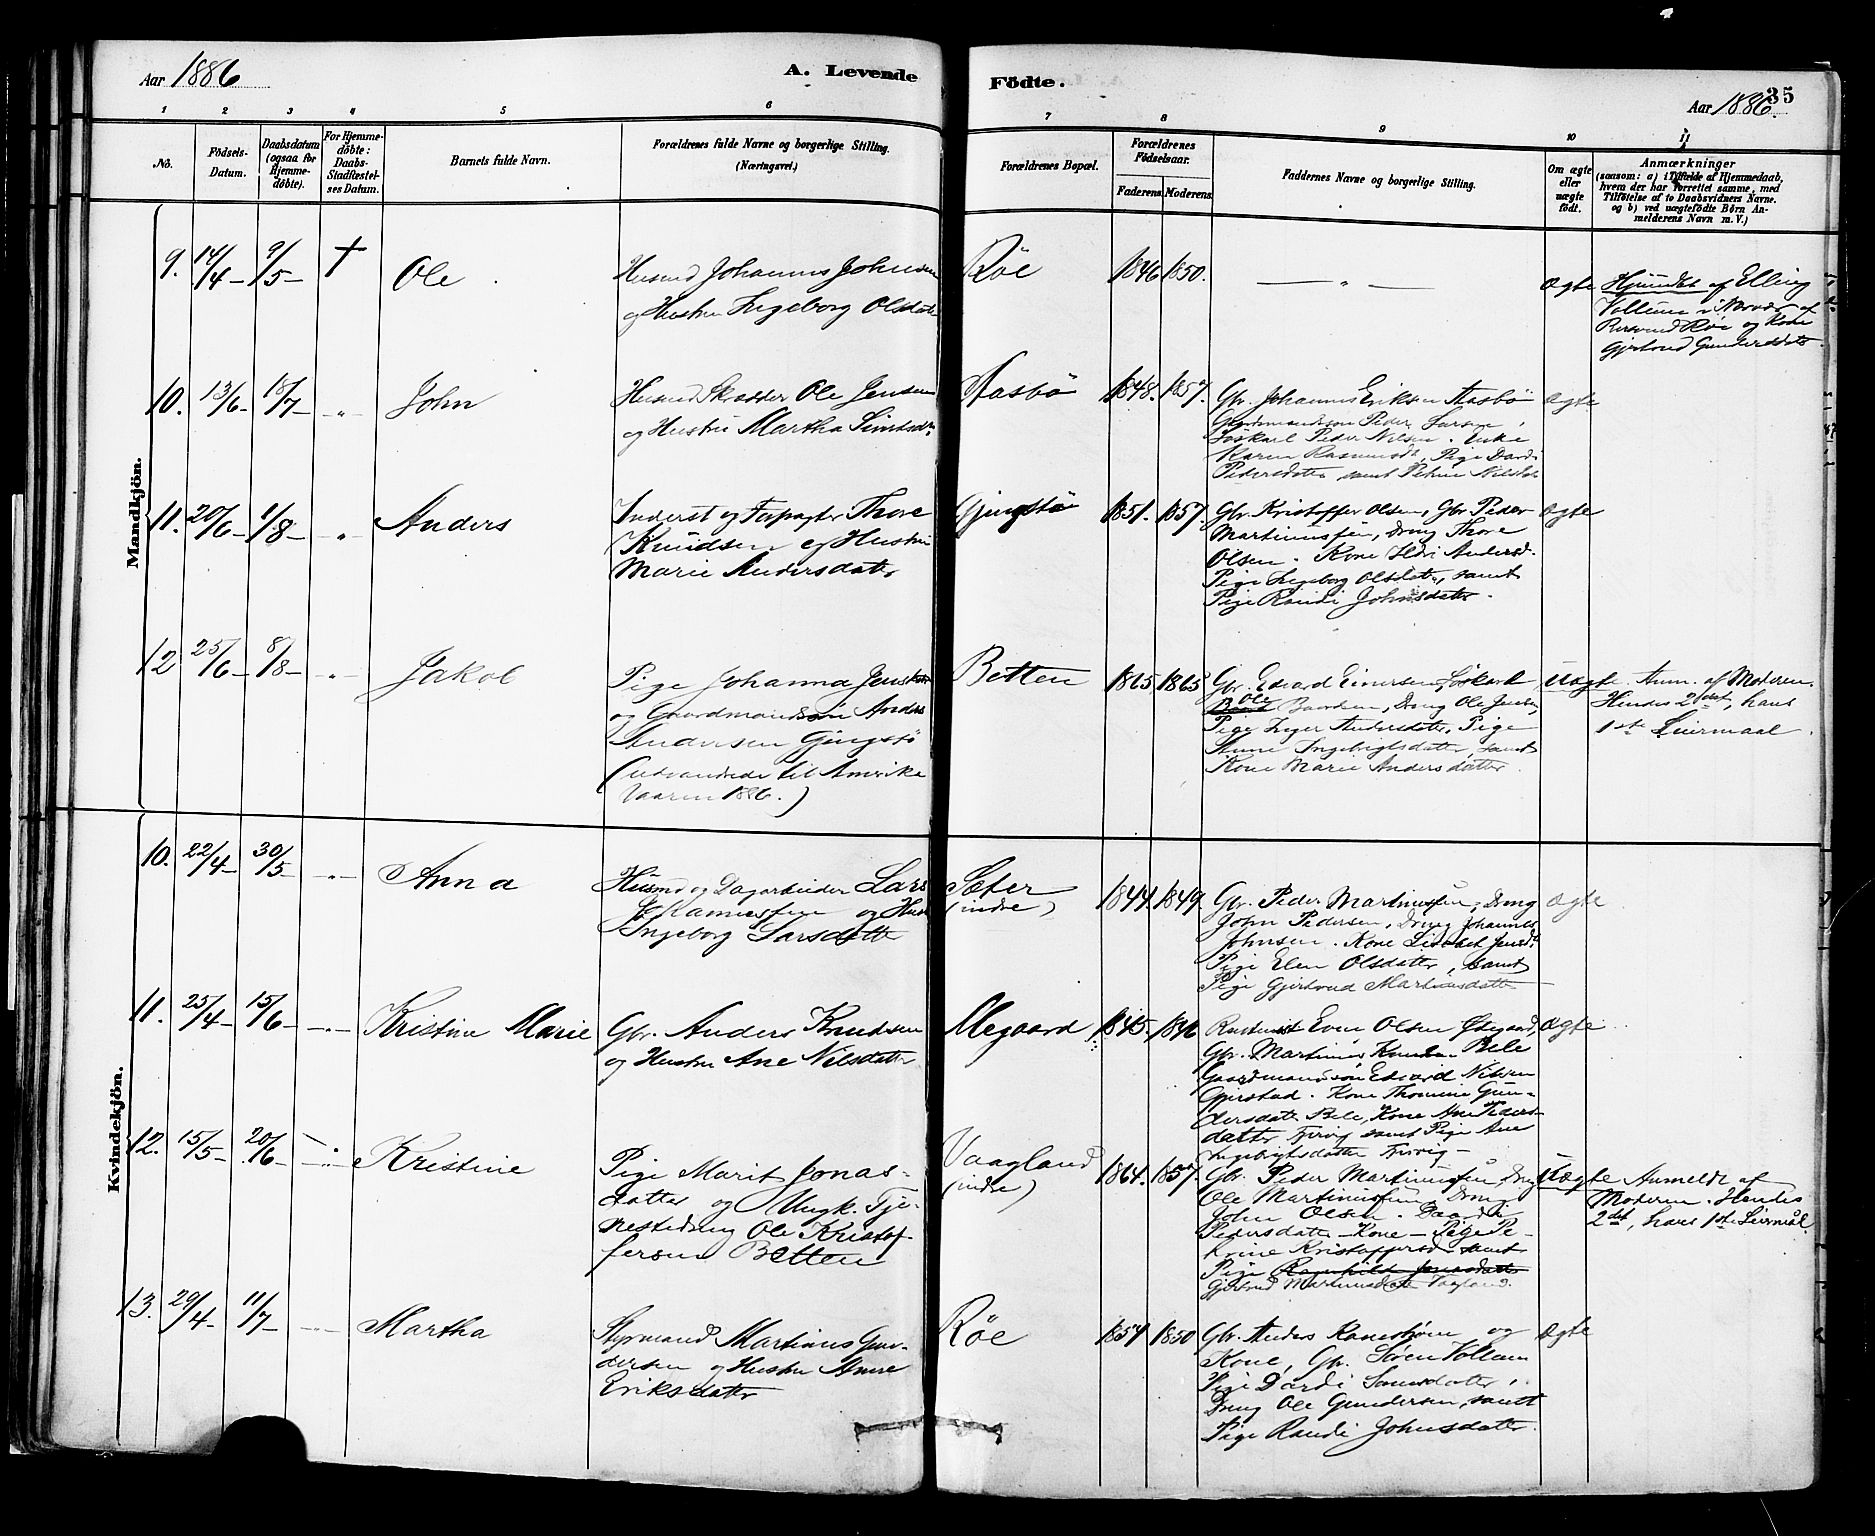 Aar 1886
A. Levende
Födte.
35
Aar 1886.
1 2 3 4 5 6 7 8 9 10 11
No.
Födsels-
Datum.
Daabsdatum
(ogsaa for
Hjemme-
döbte).
For Hjemme-
döbte:
Daabs-
Stadfæstel-
ses Datum.
Barnets fulde Navn.
Forældrenes fulde Navne og borgerlige Stilling.
(Næringsvei.)
Forældrenes Bopæl.
Forældrenes
Födselsaar.
Faderens. Moderens.
Faddernes Navne og borgerlige Stilling.
Om ægte
eller
uægte
født.
Anmærkninger
(saasom: a) i Tilfælde af Hjemmedaab,
hvem der har forrettet samme, med
Tilföielse af to Daabsvidners Navne.
og b) ved uægtefödte Börn An-
melderens Navn m. V.)
Mandkjön.
9. 14/4 9/5 † Ole
Husmd Johannes Johnsen
og Hustru Ingeborg Olsdatter
Røe 1846 1850. — „ — ægte
Hjemdøbt af Elling
Vollum i Nærvær af
Røe og Kone
Gjertrud Gundersdatter
10. 13/6 18/7 „ John
Husmd Skrædder Ole Jensen
og Hustru Martha
Aasbø 1848. 1857.
Gbr. Johannes Eriksen Aasbø
Gaardmandssøn Peder Larsen,
Løskarl Peder Nilsen. Enke
Karen Rasmusdt, Pige Dordi
Pedersdatter samt Petrine Nilsdat
ægte
11. 20/6 1/8 „ Anders
Inderst og Forpagter Thore
Knudsen og Hustru
Marie Andersdatter
Gjengstø 1851. 1857.
Gbr. Kristoffer Olsen, Gbr. Peder
Martinussen, Dreng Thore
Olsen. Kone Ildri Andersd.
Pige Ingeborg Olsdatter, samt
Pige Randi Johnsdatter.
ægte
12 25/6 8/8 „ Jakob
Pige Johanna Jensdatter
og Gaardmandssøn Anders
Andersen Gjengstø
(udvandrede til Amerika
Vaaren 1886.)
Betten 1865 1865
Gbr. Edvard Einersen, Løskarl
Ole
Baardsen, Dreng Ole Jensen,
Pige Inger Andersdatter, Pige
Anne Ingebrigtsdatter, samt
Kone Marie Andersdatter.
Uægte. Anm. af Moderen.
Hendes 2det, hans
1ste Leiermaal.
Kvindekjön.
10. 22/4 30/5 „ Anna
Husmd og Dagarbeider Lars
Rasmussen og Hustru
Ingeborg Larsdatter
Sæter
(indre)
1844. 1849.
Gbr. Peder Martinussen, Dreng
John Pedersen, Dreng Johannes
Johnsen. Kone Lisabet Jensd.
Pige Elen Olsdatter, samt
Pige Gjertrud Martinusdatter
ægte
11. 25/4 15/6 „ Kristine Marie
Gbr. Anders Knudsen
og Hustru Ane Nilsdatter
Megaard 1845, 1846
Even Olsen Ødegaard,
Gbr. Martinus Knudsen Bele
Gaardmandssøn Edvard Nilsen
Gjerstad. Kone Thomine Gun-
dersdatter Bele, Kone Ane Peders-
datter samt Pige Ane
Ingebrigtsdatter
ægte
12. 15/5 20/6 „ Kristine
Pige Marit Jonas-
datter og Ungk. Tje-
nestedreng Ole Kristof-
fersen Betten
Vaagland
(indre)
1864. 1857.
Gbr. Peder Martinussen, Dreng
Ole Martinussen, Dreng
John Olsen. Daardi
Pedersdatter — Kone — Pige Pe-
trine Kristoffersd. samt
Pige Ragnhild Jonasdatter
Gjertrud Martinusdatter Vaagland.
Uægte Anmeldt af
Moderen. Hendes
2det, hans 1ste Leiermål.
13. 29/4 11/7 „ Martha
Styrmand Martinus Gun-
dersen og Hustru Anne
Eriksdatter
Røe 1857 1850
Gbr. Anders og
Kone, Gbr. Søren Vollum
Pige Dardi
Dreng Ole Gundersen, samt
Pige Randi Johnsdatter.
ægte